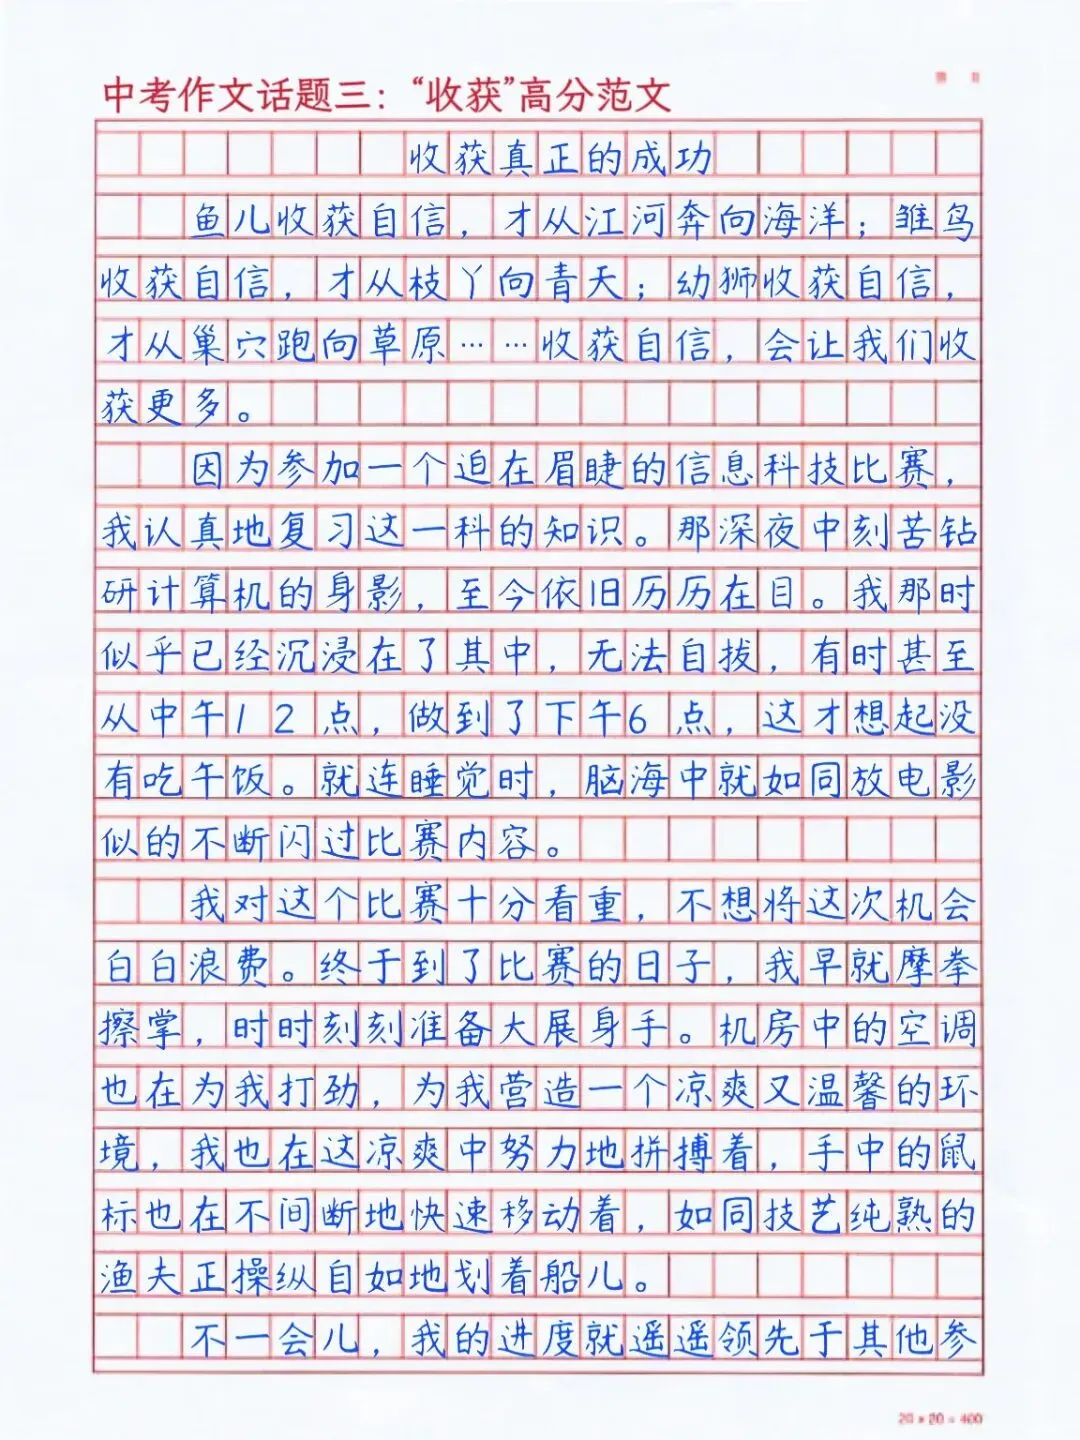 中考作文话题三：“收获”高分范文
收获真正的成功
鱼儿收获自信，才从江河奔向海洋；雏鸟
收获自信，才从枝丫向青天；幼狮收获自信，
才从巢穴跑向草原……收获自信，会让我们收
获更多。
因为参加一个迫在眉睫的信息科技比赛，
我认真地复习这一科的知识。那深夜中刻苦钻
研计算机的身影，至今依旧历历在目。我那时
似乎已经沉浸在了其中，无法自拔，有时甚至
从中午12点，做到了下午6点，这才想起没
有吃午饭。就连睡觉时，脑海中就如同放电影
似的不断闪过比赛内容。
我对这个比赛十分看重，不想将这次机会
白白浪费。终于到了比赛的日子，我早就摩拳
擦掌，时时刻刻准备大展身手。机房中的空调
也在为我打劲，为我营造一个凉爽又温馨的环
境，我也在这凉爽中努力地拼搏着，手中的鼠
标也在不间断地快速移动着，如同技艺纯熟的
渔夫正操纵自如地划着船儿。
不一会儿，我的进度就遥遥领先于其他参
20×20=400